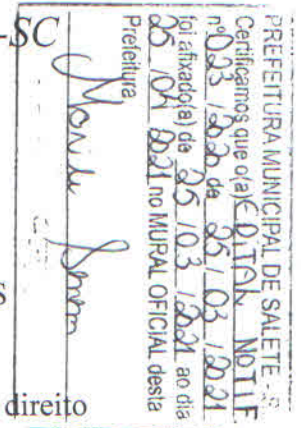 -SC
PREFEITURA MUNICIPAL DE SALETE - SC
Certificamos que o(a) EDITAL NOTIF
nº 023 / 2020 de 25 / 03 / 2021
foi afixado(a) de 25 / 03 / 2021 ao dia
25 / 04 / 2021 no MURAL OFICIAL desta
Prefeitura
direito